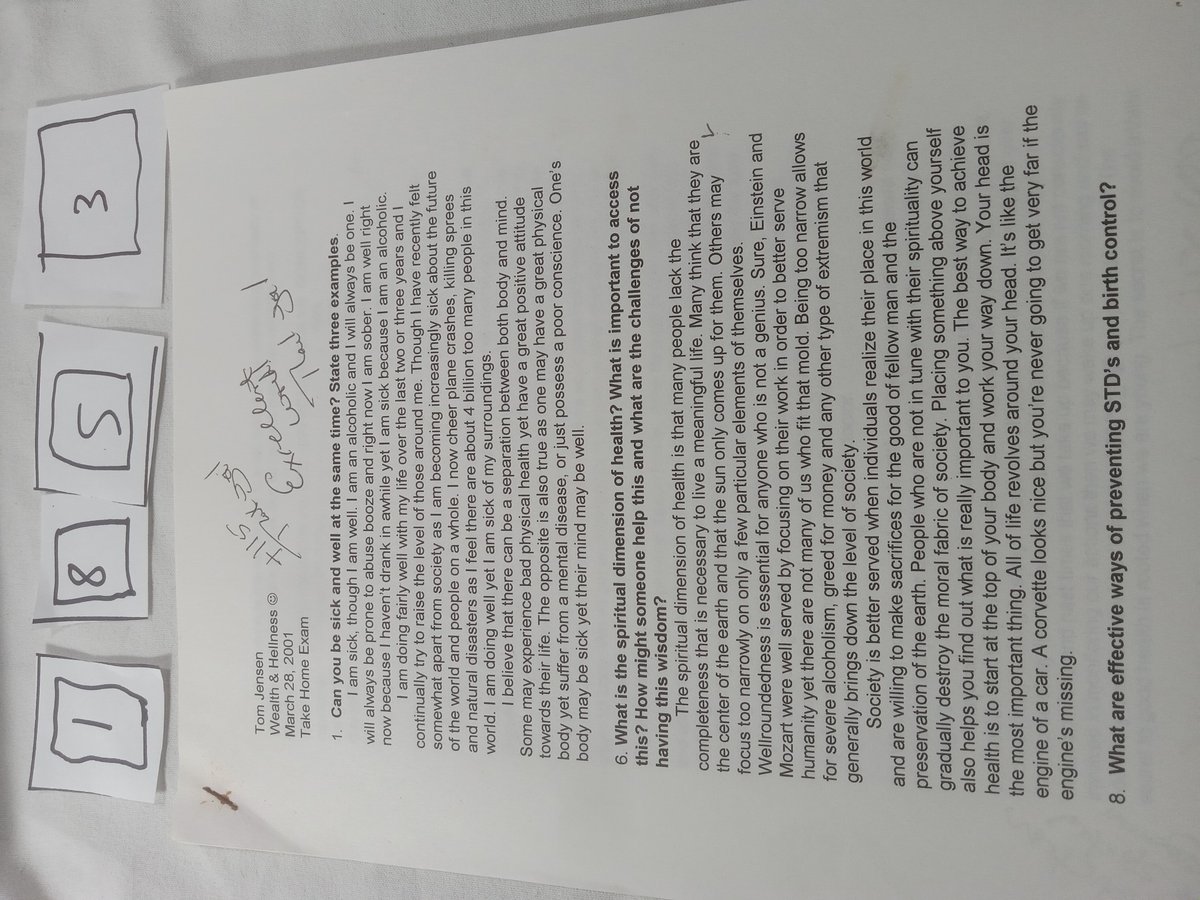 1 8 5 3
Tom Jensen
Wealth & Hellness ☺
March 28, 2001
Take Home Exam
Excellent
work
1. Can you be sick and well at the same time? State three examples.
I am sick, though I am well. I am an alcoholic and I will always be one. I
will always be prone to abuse booze and right now I am sober. I am well right
now because I haven't drank in awhile yet I am sick because I am an alcoholic.
I am doing fairly well with my life over the last two or three years and I
continually try to raise the level of those around me. Though I have recently felt
somewhat apart from society as I am becoming increasingly sick about the future
of the world and people on a whole. I now cheer plane crashes, killing sprees
and natural disasters as I feel there are about 4 billion too many people in this
world. I am doing well yet I am sick of my surroundings.
I believe that there can be a separation between both body and mind.
Some may experience bad physical health yet have a great positive attitude
towards their life. The opposite is also true as one may have a great physical
body yet suffer from a mental disease, or just possess a poor conscience. One's
body may be sick yet their mind may be well.
6. What is the spiritual dimension of health? What is important to access
this? How might someone help this and what are the challenges of not
having this wisdom?
The spiritual dimension of health is that many people lack the
completeness that is necessary to live a meaningful life. Many think that they are
the center of the earth and that the sun only comes up for them. Others may
focus too narrowly on only a few particular elements of themselves.
Wellroundedness is essential for anyone who is not a genius. Sure, Einstein and
Mozart were well served by focusing on their work in order to better serve
humanity yet there are not many of us who fit that mold. Being too narrow allows
for severe alcoholism, greed for money and any other type of extremism that
generally brings down the level of society.
Society is better served when individuals realize their place in this world
and are willing to make sacrifices for the good of fellow man and the
preservation of the earth. People who are not in tune with their spirituality can
gradually destroy the moral fabric of society. Placing something above yourself
also helps you find out what is really important to you. The best way to achieve
health is to start at the top of your body and work your way down. Your head is
the most important thing. All of life revolves around your head. It's like the
engine of a car. A corvette looks nice but you're never going to get very far if the
engine's missing.
8. What are effective ways of preventing STD's and birth control?